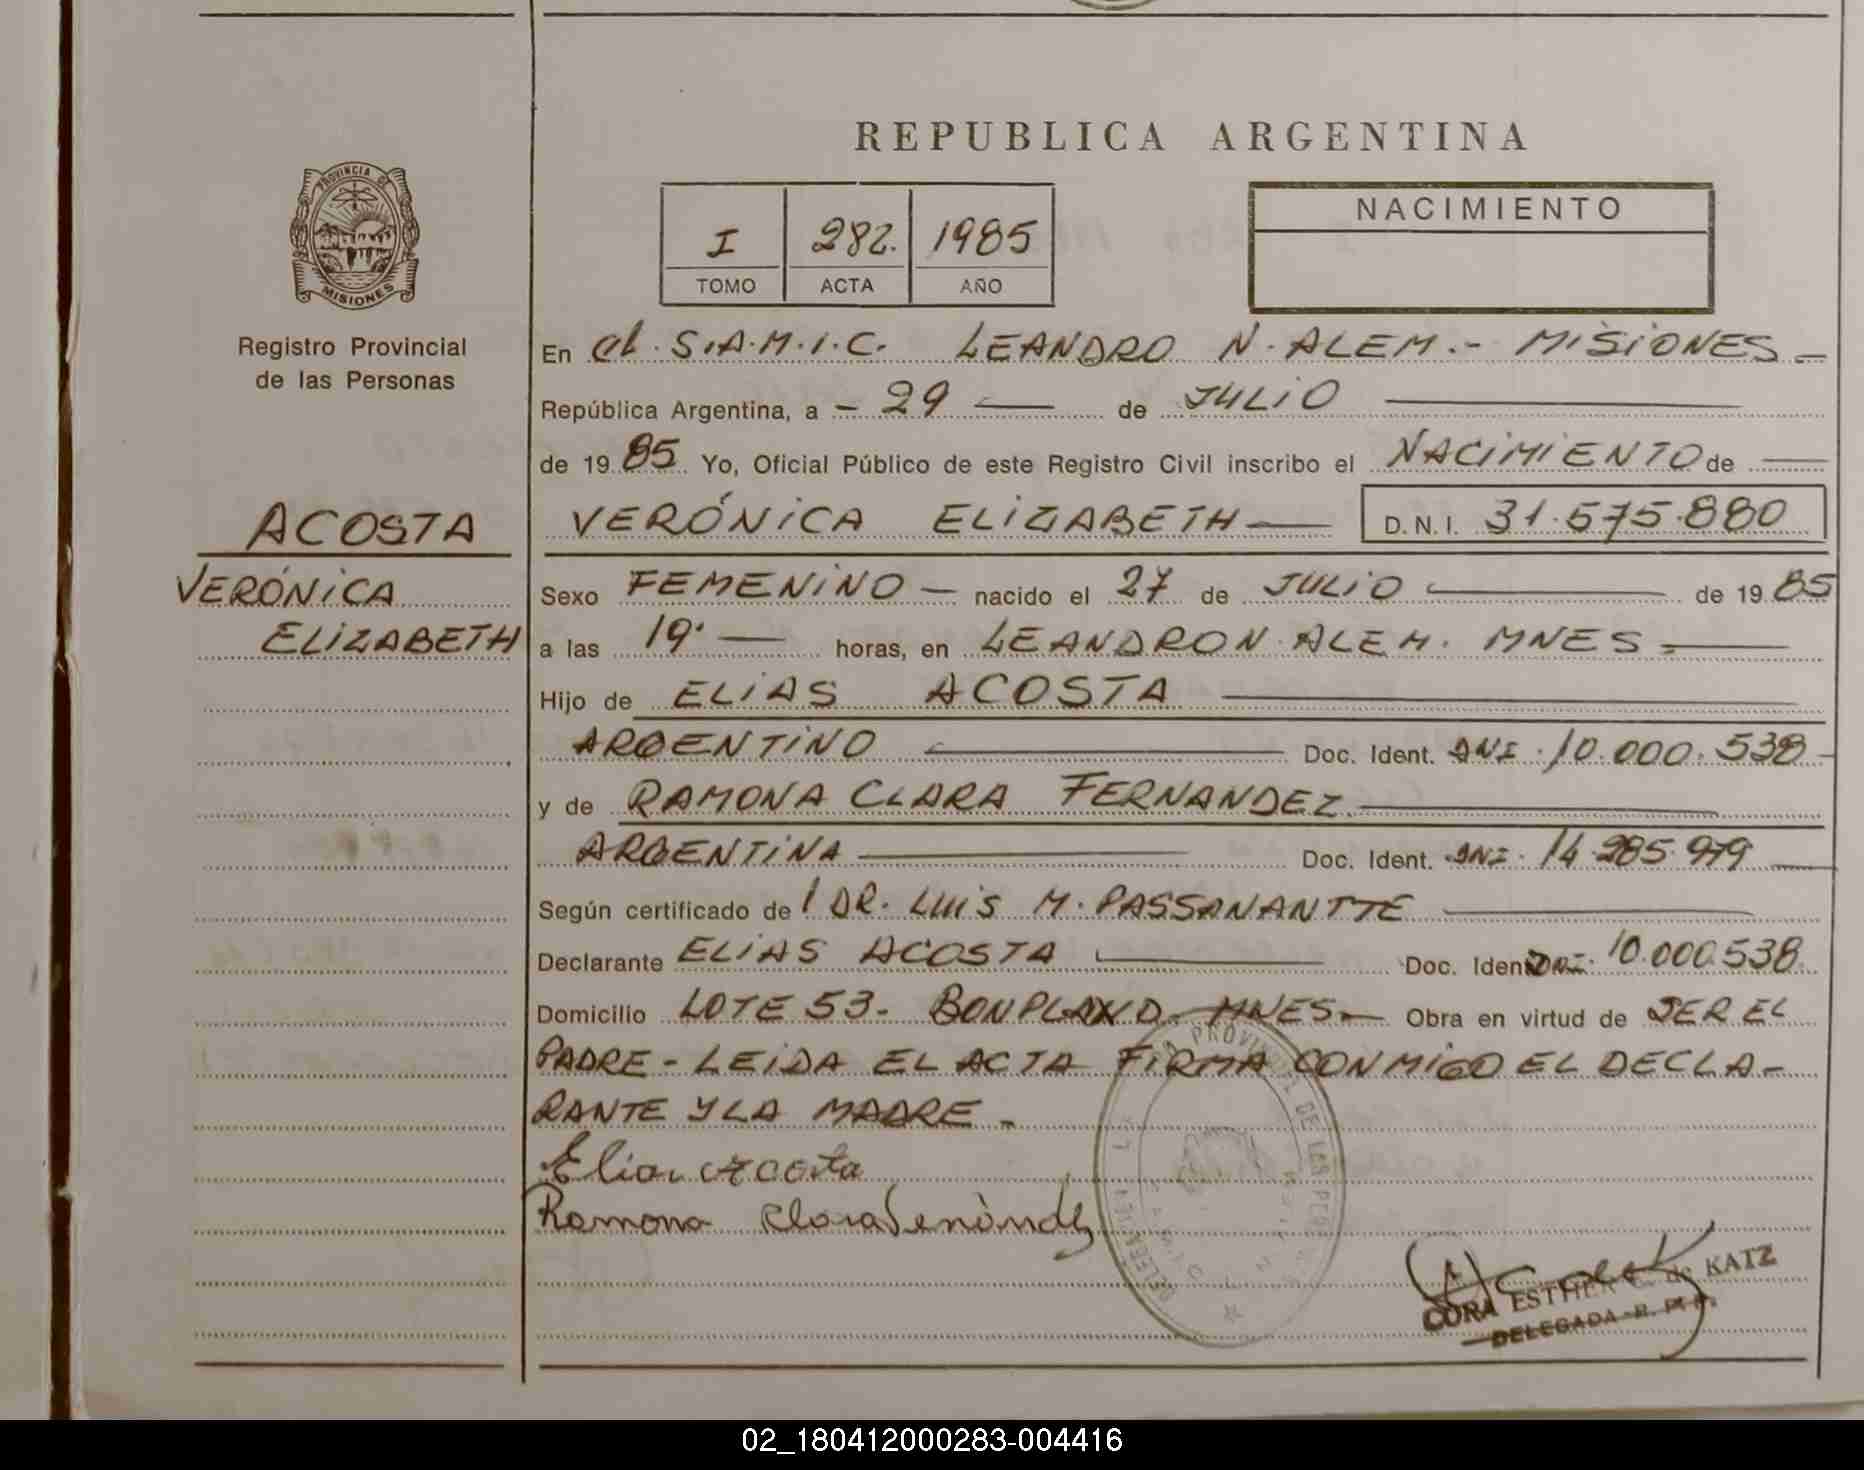 REPUBLICA ARGENTINA
PROVINCIA DE
MISIONES
Registro Provincial
de las Personas
I 282. 1985
TOMO ACTA AÑO
NACIMIENTO
En el S.A.M.I.C. LEANDRO N. ALEM.- MISIONES -
República Argentina, a - 29 — de JULIO —
de 1985 Yo, Oficial Público de este Registro Civil inscribo el NACIMIENTO de —
ACOSTA
VERÓNICA
ELIZABETH
VERÓNICA ELIZABETH — D.N.I. 31.575.880
Sexo FEMENINO — nacido el 27 de JULIO — de 1985
a las 19. — horas, en LEANDRO N. ALEM. MNES. —
Hijo de ELIAS ACOSTA —
ARGENTINO — Doc. Ident. DNI. 10.000.538 -
y de RAMONA CLARA FERNANDEZ. —
ARGENTINA — Doc. Ident. DNI. 14.285.979 —
Según certificado de l DR. LUIS M. PASSANANTTE —
Declarante ELIAS ACOSTA — Doc. Ident. DNI. 10.000.538.
Domicilio LOTE 53- BONPLAND. MNES.— Obra en virtud de SER EL
PADRE - LEIDA EL ACTA FIRMA CONMIGO EL DECLA-
RANTE Y LA MADRE -
Elias Acosta
Ramona Clara Fernández
CORA ESTHER C. de KATZ
DELEGADA R. P. P.
02_180412000283-004416